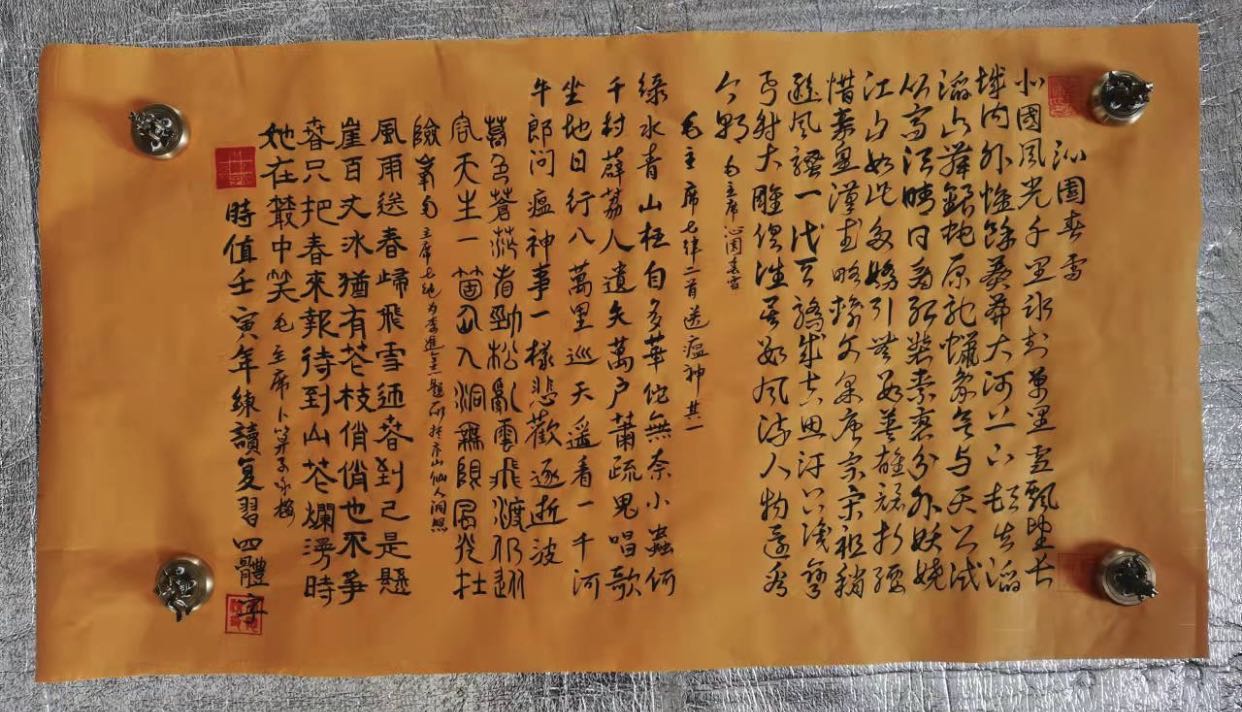 沁園春雪
北國風光千里冰封萬里雪飄望長
城内外惟餘莽莽大河上下頓失滔
滔山舞銀蛇原馳蠟象欲与天公試
比高須晴日看紅裝素裹分外妖嬈
江山如此多嬌引無數英雄競折腰
惜秦皇漢武略輸文采唐宗宋祖稍
遜風騷一代天驕成吉思汗只識彎
弓射大雕俱往矣數風流人物還看
今朝 毛主席沁園春雪
毛主席七律二首送瘟神其一
綠水青山枉自多華佗無奈小蟲何
千村薜荔人遺矢萬户蕭疏鬼唱歌
坐地日行八萬里巡天遥看一千河
牛郎問瘟神事一樣悲歡逐逝波
暮色蒼茫看勁松亂雲飛渡仍從
容天生一箇仙人洞無限風光在
險峯 主席七絶为李進題所庐山仙人洞照
風雨送春歸飛雪迎春到已是懸
崖百丈冰猶有花枝俏俏也不爭
春只把春來報待到山花爛漫時
她在叢中笑 毛主席卜算子咏梅
時值壬寅年練讀复習四體